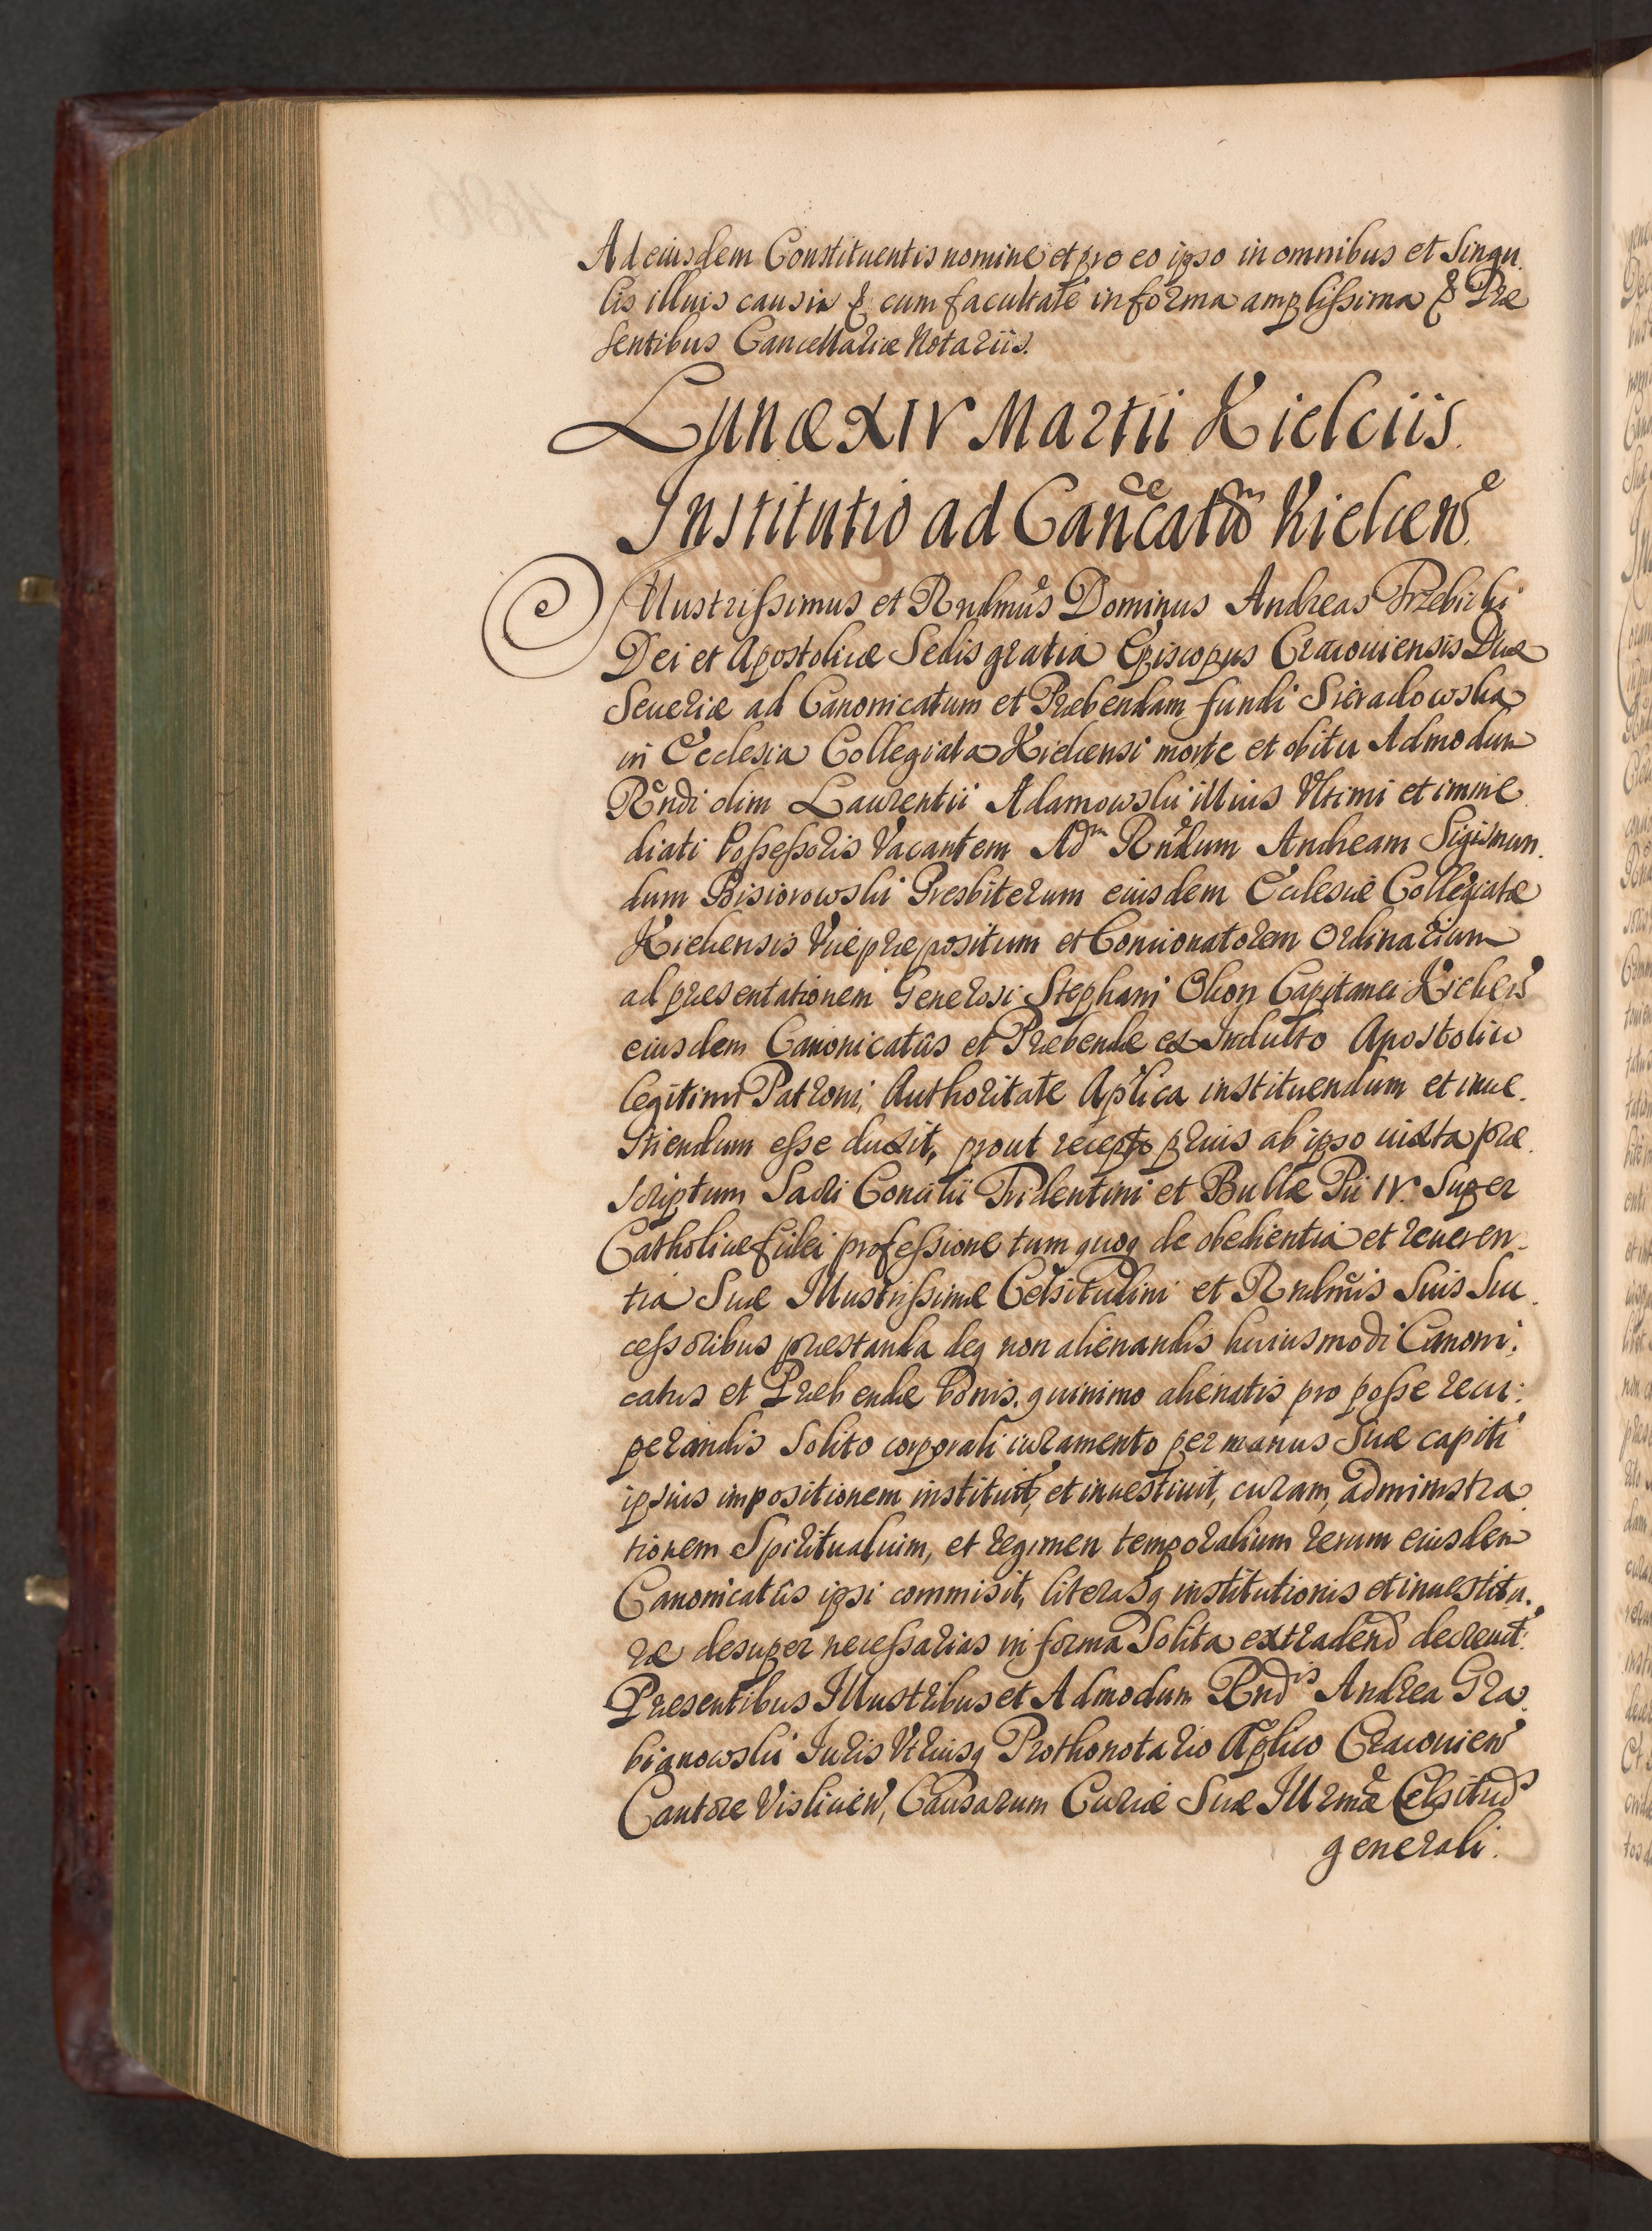 Ad eiusdem Constituentis nomine et pro eo ipso in omnibus et Singu.
lis illius causis &. cum facultate in forma amplissima & Præ
sentibus Cancellariæ Notariis.
Lunæ XIV Martii Kielciis.
Institutio ad Canc̃catũm Kielcen̄.
Illustrissimus et Rndmus Dominus Andreas Trzebicki
Dei et Apostolicæ Sedis gratia Episcopus Cracouiensis Dux
Seueriæ ad Canonicatum et Præbendam fundi Sieradowska
in Ecclesia Collegiata Kielcensi morte et obitu Admodum
Rndi olim Laurentii Adamowski illius Vltimi et imme
diati Possessoris Vacantem Adm Rndum Andream Sigismun.
dum Bisiorowski Presbiterum eiusdem Ecclesiæ Collegiatæ
Kielcensis Vicepræpositum et Concionatorem Ordinarium
ad præsentationem Generosi Stephani Oleon Capitanei Kielcen̄
eiusdem Canonicatûs et Præbendæ ex Indulto Apostolico
legitimi Patroni, Authoritate Aplica instituendum et inue.
stiendum esse duxit, prout recepto prius ab ipso iuxta præ.
scriptum Sacri Concilii Tridentini et Bullæ Pii IV. Super
Catholicæ fidei professione tum quoq de obedientia et reueren.
tia Suæ Illustrissimæ Celsitudini et Rndmis Suis Suc
cessoribus præstanda deq non alienandis huiusmodi Canoni.
catus et Præbendæ bonis. quinimo alienatis pro posse recu:
perandis Solito corporali iuramento per manus Suæ capiti
ipsius impositionem instituit, et inuestiuit, curam, administra.
tionem Spiritualium, et regimen temporalium rerum eiusdem
Canonicatûs ipsi commisit, literasq institutionis et inuestitu.
ræ desuper necessarias in forma Solita extradend decreuit.
Præsentibus Illustribus et Admodum Rndis Andrea Gra.
bianowski Iuris Vtriusq Prothonotario Aplico Cracouien̄
Cantore Vislicien̄, Causarum Curiæ Suæ Illrmæ Celsitud
generali.